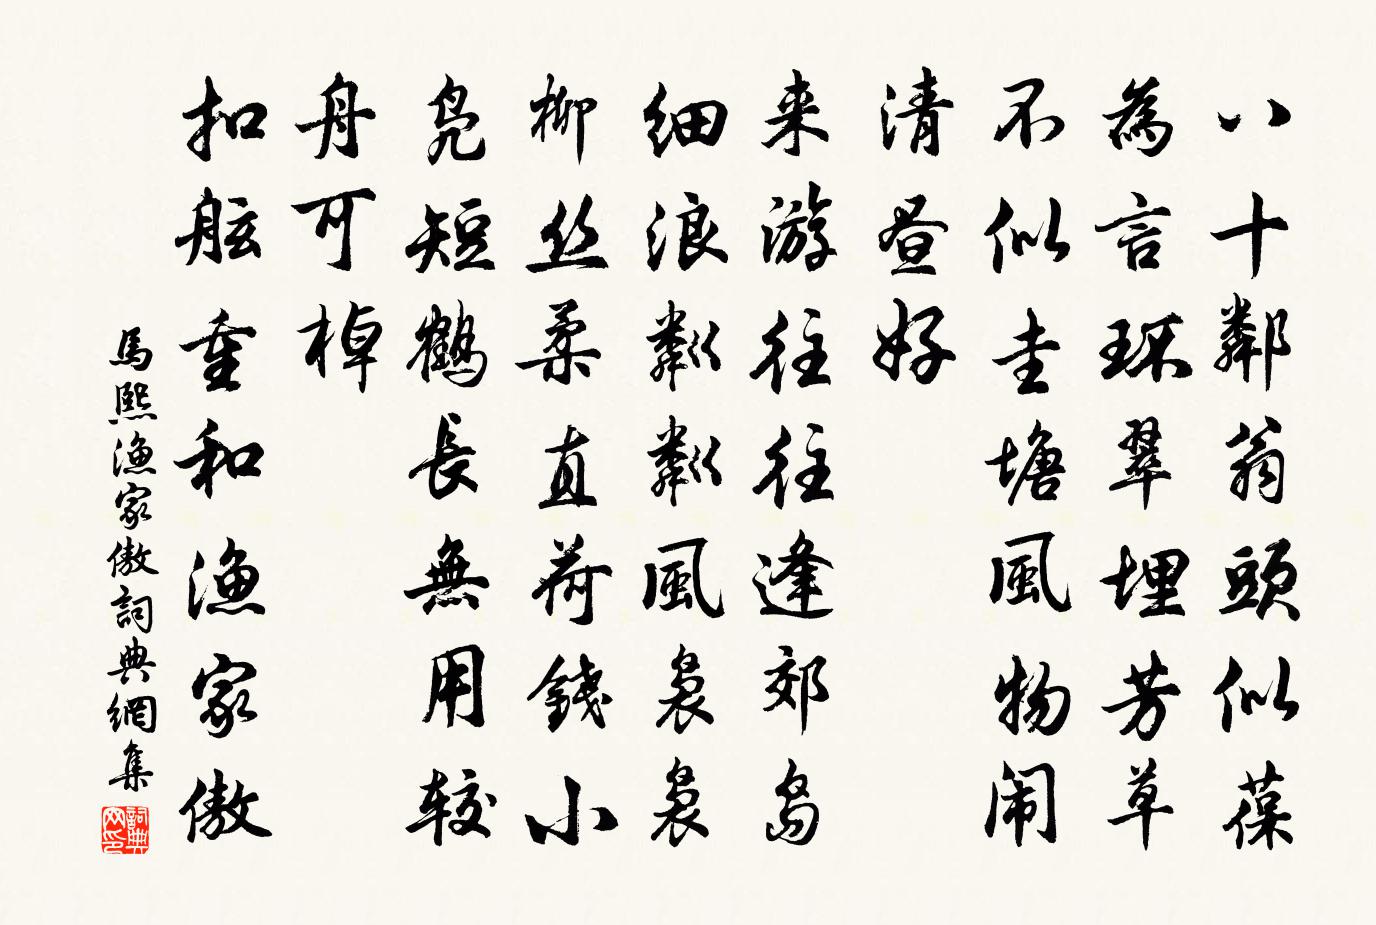 八十鄰翁頭似葆
為言環翠埋芳草
不似圭塘風物闹
清昼好
来游往往逢郊岛
细浪粼粼風袅袅
柳丝柔直荷錢小
凫短鶴長無用较
舟可棹
扣舷重和渔家傲
馬熙渔家傲詞典網集
詞典网印